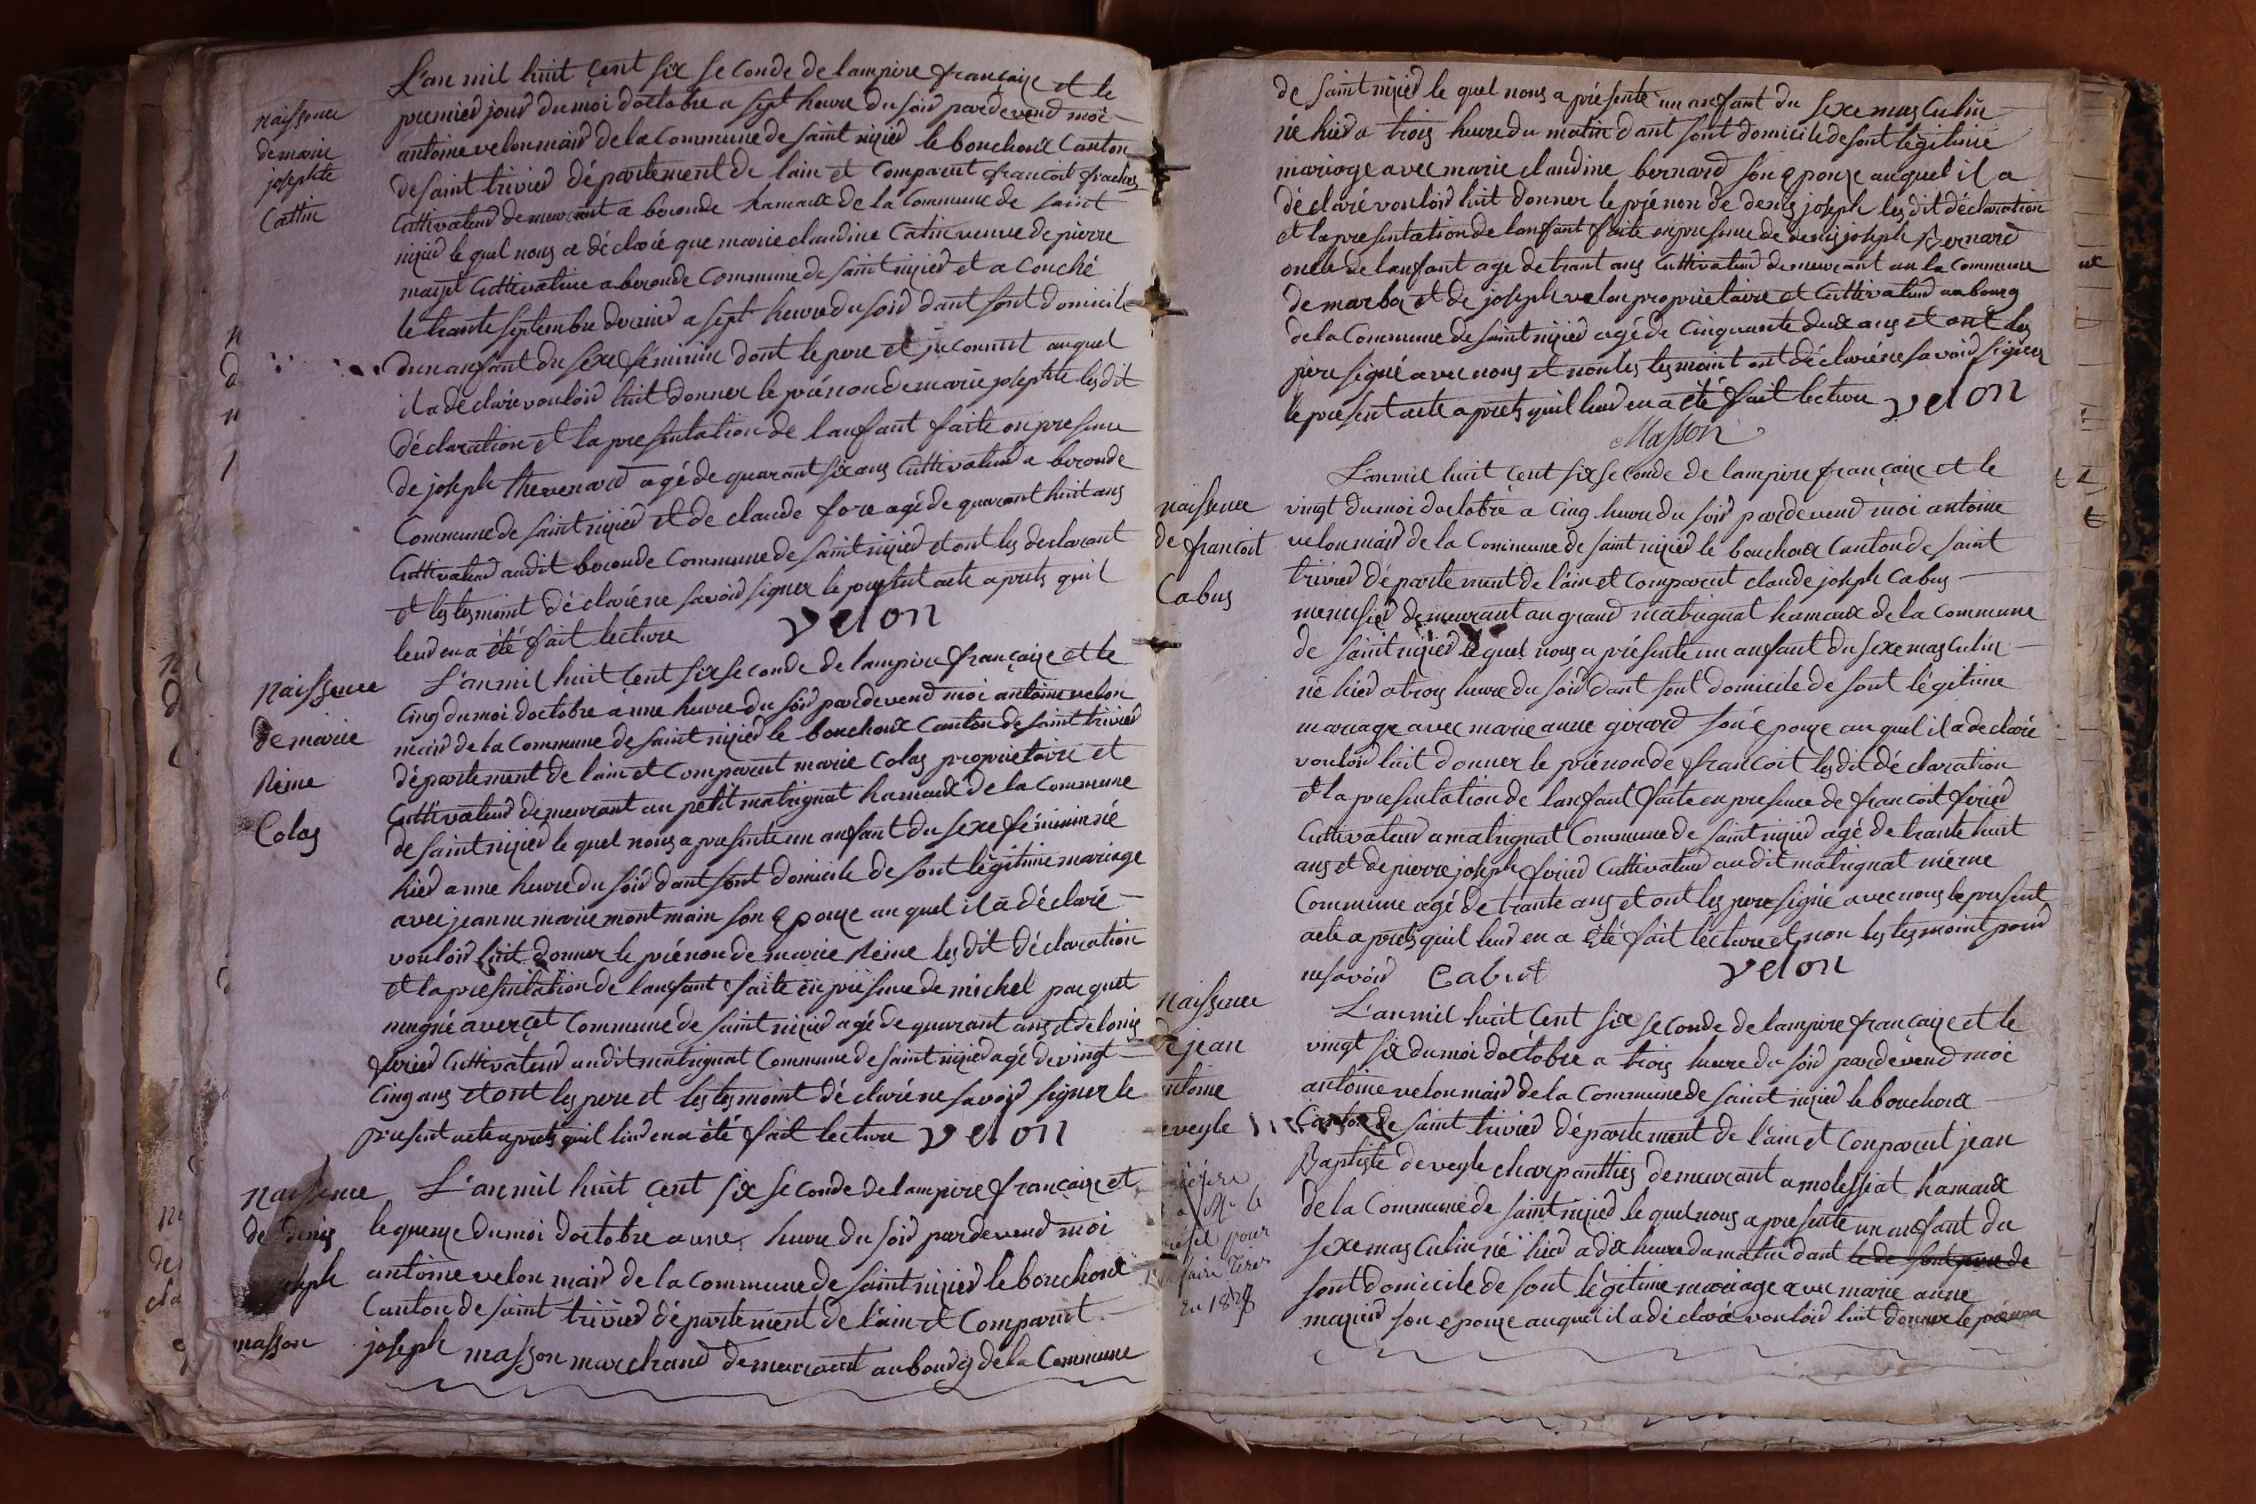 L'an mil huit cent six seconde de lampire françaize et le
premier jour du moi doctobre a sept heure du soir pardevend moi
antoine velon maird de la commune de saint nizied le bouchoux canton
de saint trivied département de lain et comparut francoit
cultivateur demeurant a boronde hamaux de la commune de saint
nizied le quel nous a déclaré que marie claudine Catin veuve de pierre
cultivatrice a beronde commune de saint nizied et a couché
le trante septembre dernied a sept heure du soir dant sont domicile
dun anfant du sexe féminin dont le pere et jnconnut auquel
il a déclaré vouloir luit donner le prénon de marie josephte lesdit
déclaration et la presentation de lanfant faite en presence
de joseph thevenard agé de quarant six ans cultivateur a beronde
commune de saint nizied et de claude fore agé de quarant huit ans
cultivateur audit boronde commune de saint nizied et ont les declarant
et les tesmoint déclaré ne savoir signer le present acte aprets quil
leur en a été fait lecture velon
naissence
de marie
josephte
Cattin
L'an mil huit cent six seconde de lampire françaize et le
cinq du moi doctobre a une heure du soir pardevend moi antoine velon
maird de la commune de saint nizied le bouchoux canton de saint trivied
département de lain et comparut marie Colas proprietaire et
cultivateur demeurant au petit matrignat hamaux de la commune
de saint nizied le quel nous a presente un anfant du sexe féminin né
hier a une heure du soir dant sont domicile de sont légitime mariage
avec jeanne marie montmain son epouze au quel il a déclaré
vouloir luit donner le prénon de marie Reine lesdit déclaration
et la presentation de lanfant faite en presence de michel paquet
commune de saint nizied agé de quarant ans et de
feried cultivateur audit matrignat commune de saint nizied agé de vingt
cinq ans et ont les pere et les tesmoint déclaré ne savoir signer le
present acte aprets quil leur en a été fait lecture velon
Naissence
de marie
Reine
Colas
L'an mil huit cent six seconde de lampire françaize et
le quenze du moi doctobre a une heure du soir pardevend moi
antoine velon maird de la commune de saint nizied le bouchoux
canton de saint trivied département de lain et comparut
joseph masson marchand demeurant au bourg de la Commune
Naissence
de denis
joseph
masson
de saint nizied le quel nous a présenté un anfant du sexe masculin
né hier a trois heure du matin dant sont domicile de sont légitime
mariage avec marie claudine bernard son epouze auquel il a
déclaré vouloir luit donner le prénon de denis joseph lesdit déclaration
et la presentation de lanfant faite en presence de denis joseph Bernard
oncle de lanfant age de trant ans cultivateur demeurant an la commune
de marboz et de joseph velon proprietaire et cultivateur au bourg
de la commune de saint nizied agé de cinquante deux ans et ont les
pere signé avec nous et non les tesmoint ont déclaré ne savoir signer
le present acte aprets quil leur en a été fait lecture velon
Masson
L'an mil huit cent six seconde de lampire françaize et le
vingt du moi doctobre a cinq heure du soir pardevend moi antoine
velon maird de la commune de saint nizied le bouchoux canton de saint
trivied département de l'ain et comparut claude joseph Cabus
menusied demeurant au grand matrignat hamaux de la commune
de saint nizied le quel nous a présenté un anfant du sexe masculin
né hier a trois heure du soir dant sont domicile de sont légitime
mariage avec marie anne girard son epouze au quel il a déclaré
vouloir luit donner le prénon de francoit lesdit déclaration
et la presentation de lanfant faite en presence de francoit feried
cultivateur a matrignat commune de saint nizied agé de trante huit
ans et de pierre joseph feried cultivateur audit matrignat même
commune agé de trante ans et ont les pere signé avec nous le present
acte aprets quil leur en a été fait lecture et non les tesmoint pour
ne savoir Cabut velon
naissence
de francoit
Cabus
L'an mil huit cent six seconde de lampire francaize et le
vingt six du moi doctobre a trois heure du soir pardevend moi
antoine velon maird de la commune de saint nizied le bouchoux
canton de saint trivied département de l'ain et comparut jean
Baptiste deveyle charpanttier demeurant a molessiat hamaux
de la commune de saint nizied le quel nous a presenté un anfant du
sexe masculin né hier a dix heure du matin dant
sont domicile de sont légitime mariage avec marie anne
mazied son epouze auquel il a déclaré vouloir luit donner le prénon
naissence
de jean
antoine
deveyle
pour
en 18